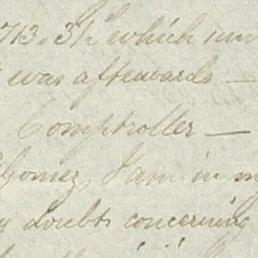 713. 3½ which
was afterwards —
Comptroller —
Gomez, I am in
doubts concerning